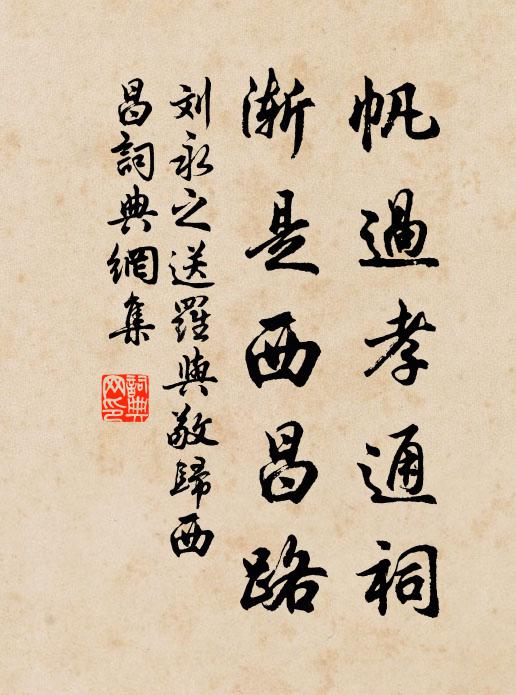 帆過孝通祠
漸是西昌路
刘永之送羅與敬歸西
昌詞典網集
詞典网印